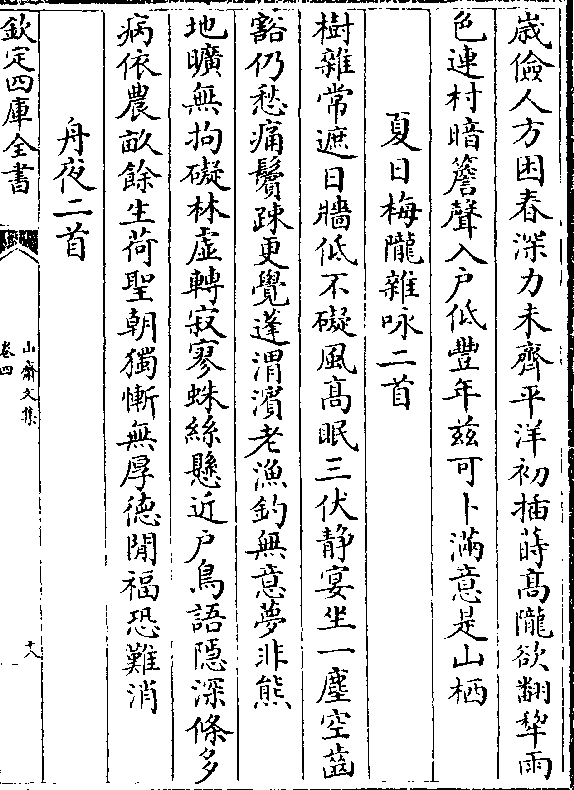 歳儉人方困春深力未齊平洋初插蒔高隴欲翻犂雨
色連村暗簷聲入户低豐年兹可卜滿意是山栖
夏日梅隴雜咏二首
樹雜常遮日牆低不礙風高眠三伏静宴坐一塵空齒
豁仍愁痛鬢疎更覺蓬渭濱老漁釣無意夢非熊
地曠無拘礙林虚轉寂寥蛛絲懸近户鳥語隠深條多
病依農畝餘生荷聖朝獨慚無厚徳閒福恐難消
舟夜二首
欽定四庫全書
山齋文集
卷四
十八